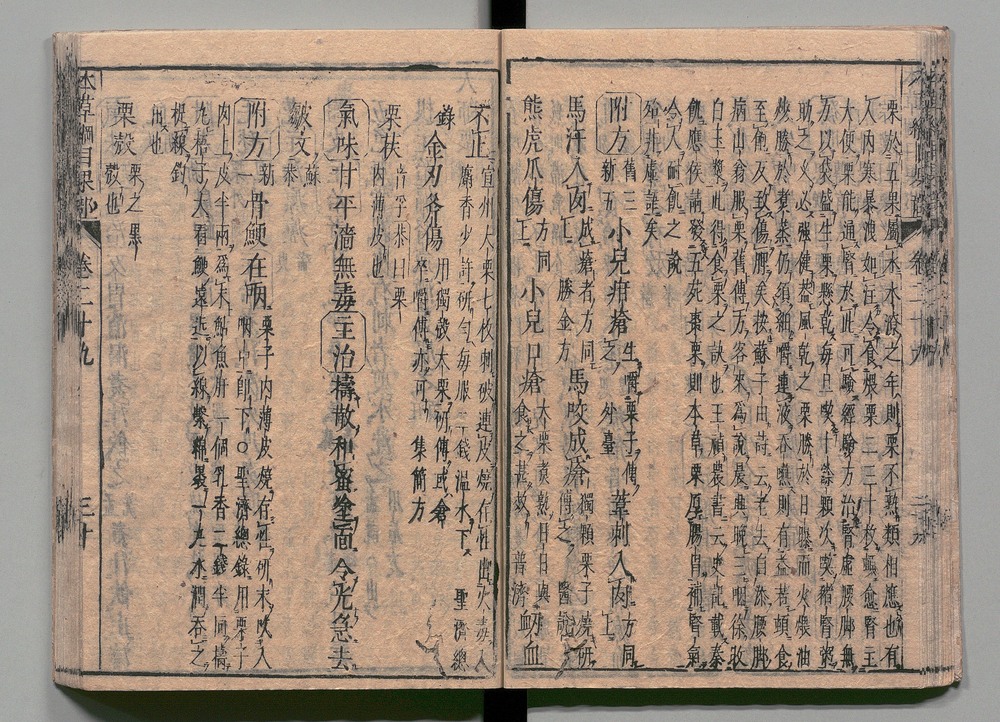 栗於五果屬水水潦之年則栗不熟類相應也有
人内寒暴洩如注令食煨栗二三十枚頓愈腎主
大便栗能通腎於此可驗經驗方治腎虛腰脚無
力以袋盛生栗懸乾每旦喫十餘顆次喫豬腎粥
助之久必強健蓋風乾之栗勝於日曝而火煨油
炒勝於煮蒸仍須細嚼連液吞嚥則有益若頓食
至飽反致傷脾矣按蘇子由詩云老去自添腰脚
病山翁服栗舊傳方客來爲說晨興晚三咽徐收
白玉漿此得食栗之訣也王禎農書云史記載秦
飢應侯請發五苑棗栗則本草栗厚腸胃補腎氣
令人耐飢之說
殆非虛語矣
附方 舊三
新五
小兒疳瘡 生嚼栗子傅
之 外臺
葦刺入肉 方同
上
馬汗入肉 成瘡者方同
上 勝金方
馬咬成瘡 獨顆栗子燒研
傅之 醫說
熊虎爪傷 方同
上
小兒口瘡 大栗煮熟日日與
食之甚效 普濟
衂血
不正 宣州大栗七枚刺破連皮燒存性出火毒入
麝香少許研勻每服二錢温水下 聖濟總
錄
金刃斧傷 用獨殼大栗研傅或倉
卒嚼傅亦可 集簡方
栗扶 音孚恭曰栗
内薄皮也
氣味甘平濇無毒主治擣散和蜜塗面令光急去
皺文 蘇
恭
附方 新
一
骨鯁在咽 栗子内薄皮燒存性研末吹入
咽中即下○聖濟總錄用栗子
肉上皮半兩爲末鮎魚肝一個乳香二錢半同擣
丸梧子大看鯁遠近以線繫綿裹一丸水潤吞之
提線釣
出也
栗殼 栗之黑
殼也
本草綱目果部 卷二十九 三十